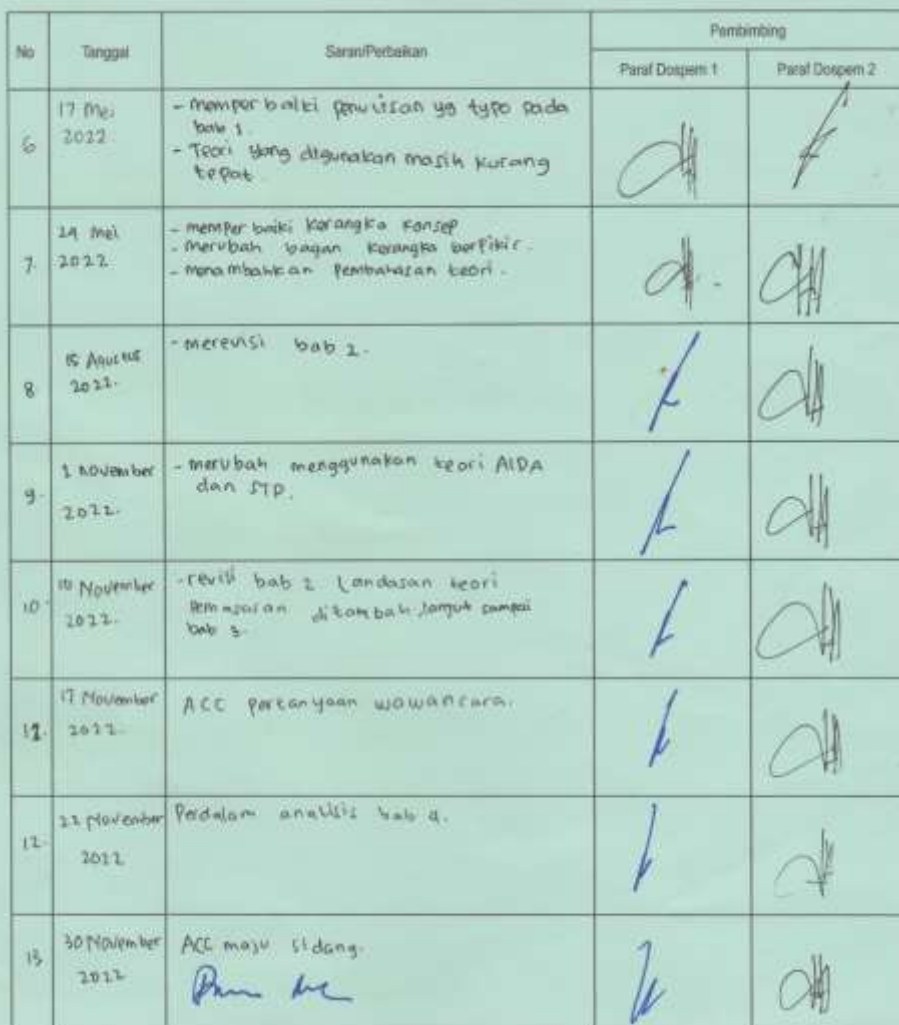 No Tanggal Saran/Perbaikan Pembimbing
Paraf Dospem 1 Paraf Dospem 2
6 17 Mei 2022. - memperbaiki penulisan yg typo pada
bab 1.
- Teori yang digunakan masih kurang
tepat.
7. 24 Mei 2022 - memperbaiki kerangka konsep
- merubah bagan kerangka berpikir.
- menambahkan pembahasan teori.
8 15 Agustus 2022. - merevisi bab 2.
9. 1 November 2022. - merubah menggunakan teori AIDA
dan STP.
10. 10 November 2022. - revisi bab 2 landasan teori
pemasaran ditambah, lanjut sampai
bab 3.
11. 17 November 2022. ACC pertanyaan wawancara.
12. 22 November 2022 Perdalam analisis bab 4.
13 30 November 2022 ACC maju sidang.